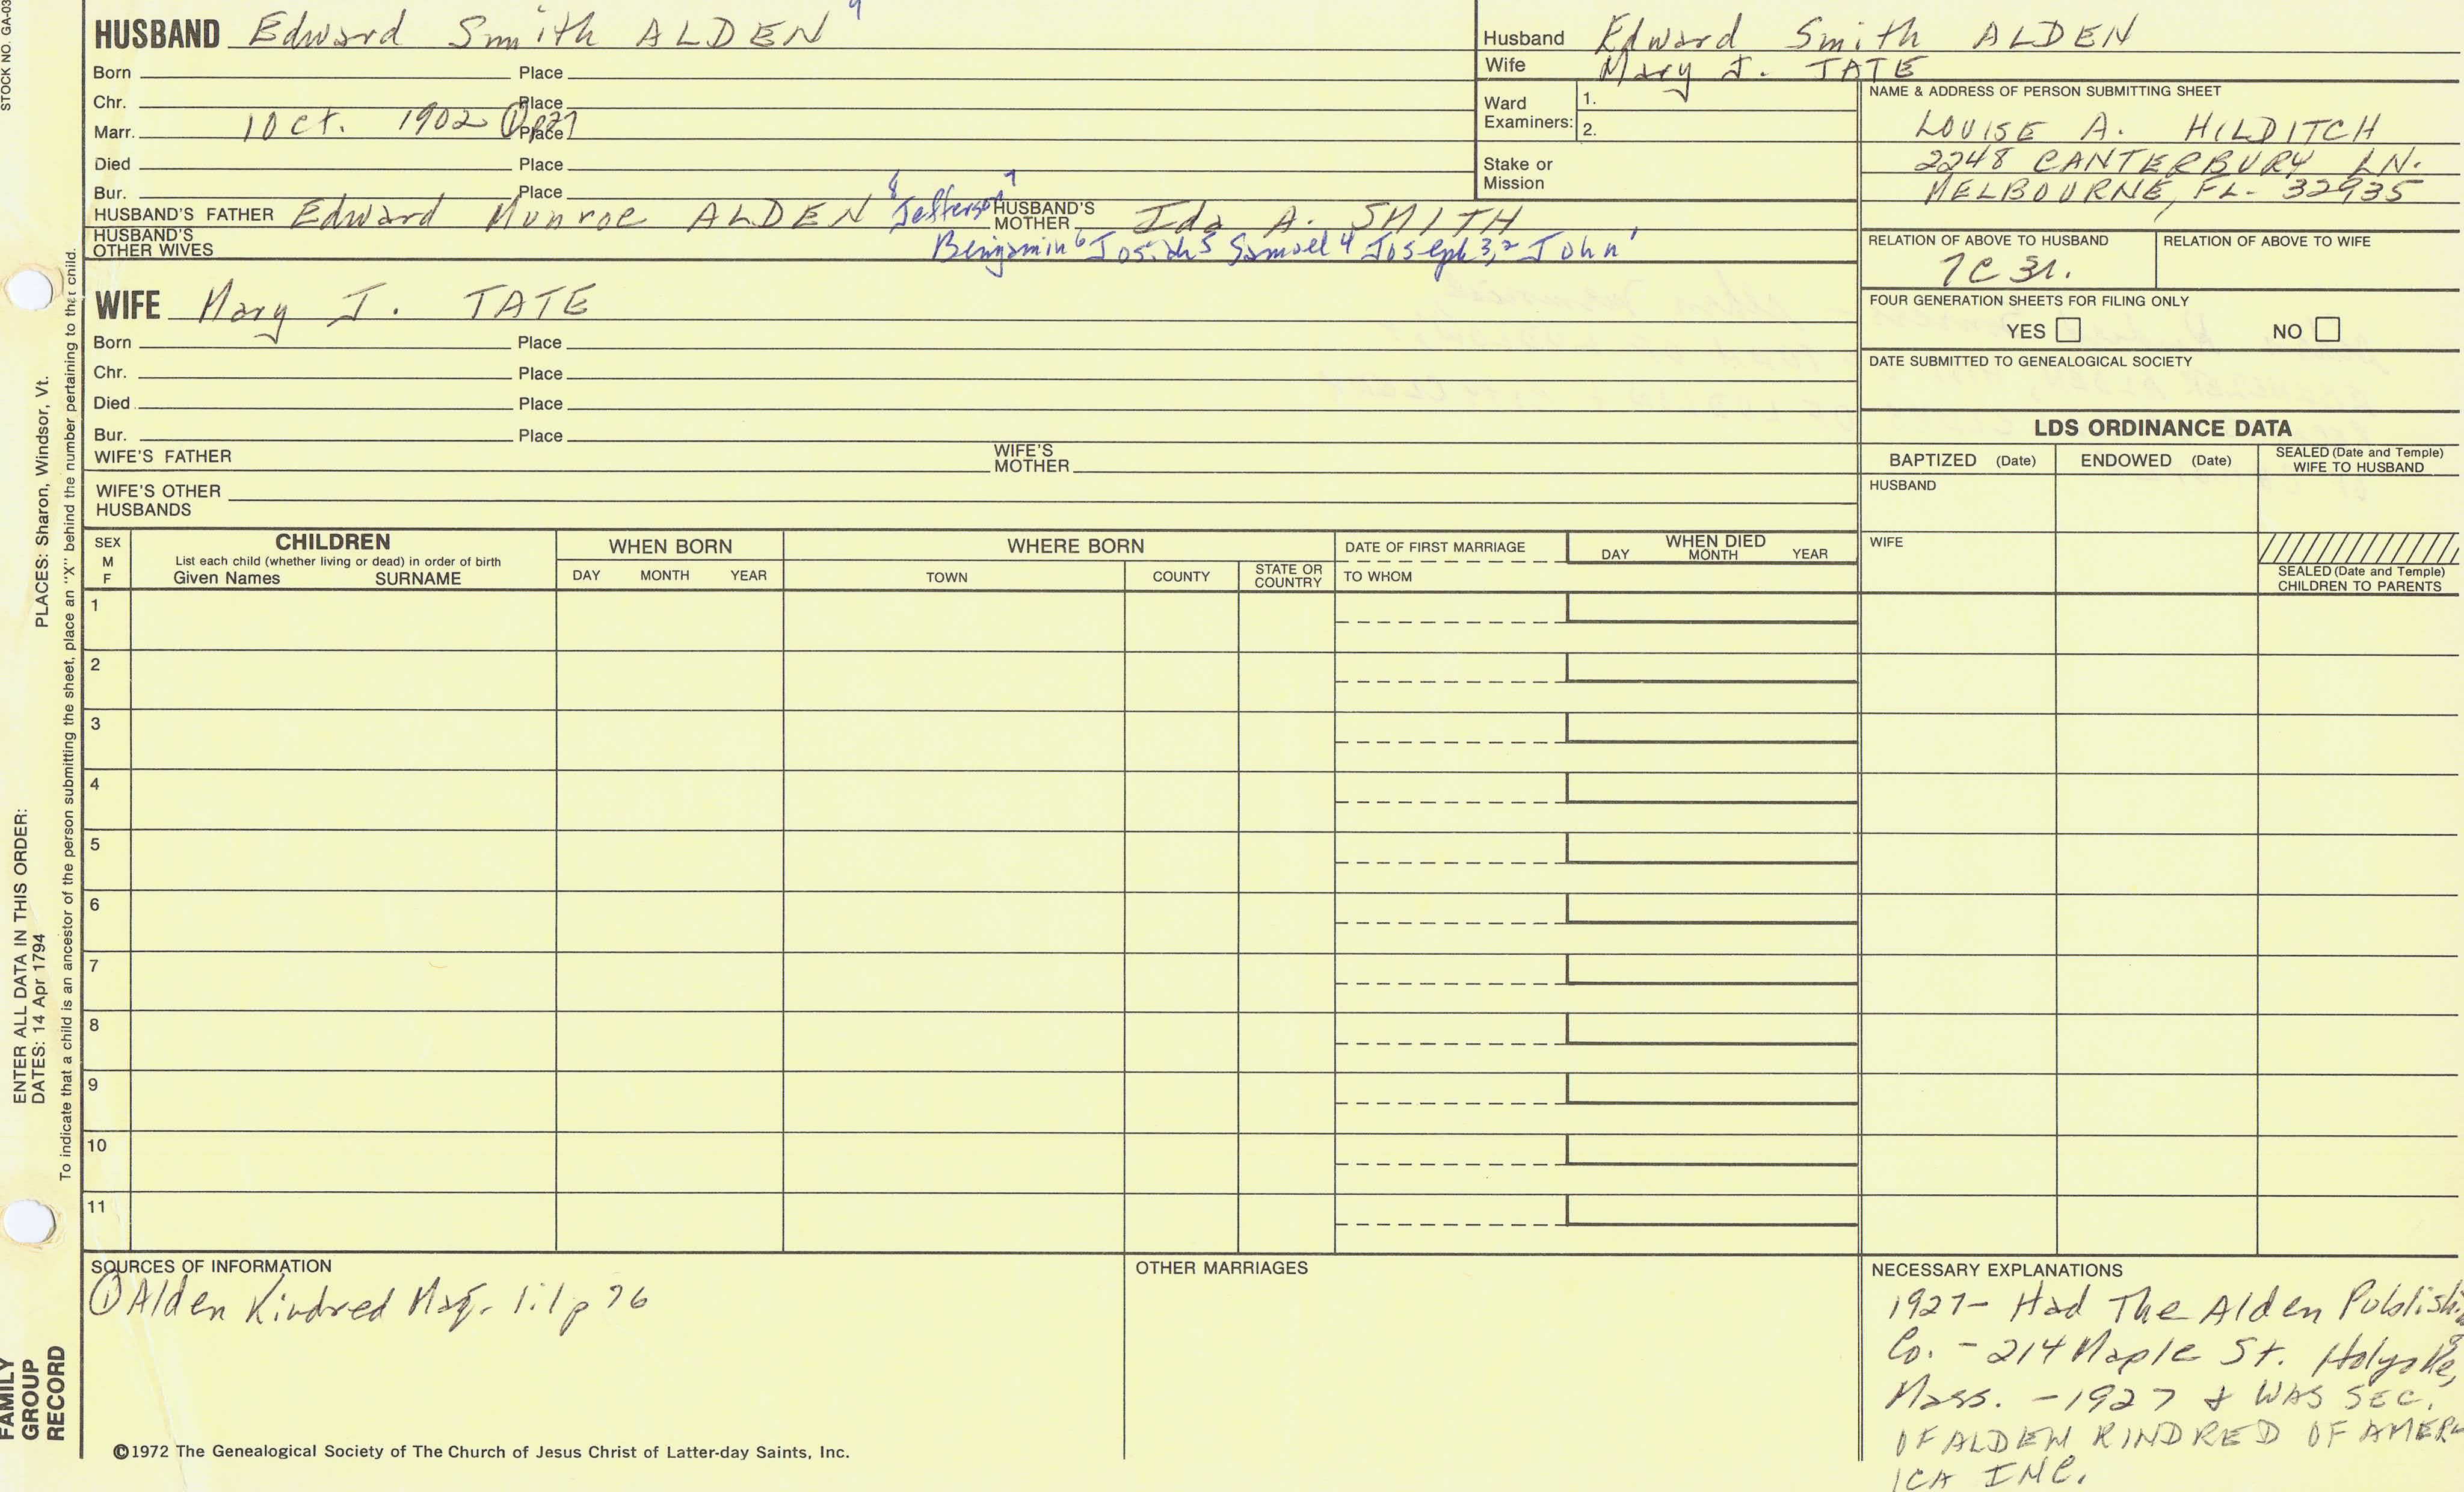 STOCK NO. GA-03
HUSBAND Edward Smith ALDEN 9
Born Place
Chr. Place
Marr. 1 Oct. 1902 ① Place
Died Place
Bur. Place
HUSBAND'S FATHER Edward Munroe ALDEN 8 Jefferson 7 HUSBAND'S MOTHER Ida A. SMITH
HUSBAND'S OTHER WIVES Benjamin 6 Josiah 5 Samuel 4 Joseph 3,2 John 1
WIFE Mary J. TATE
Born Place
Chr. Place
Died Place
Bur. Place
WIFE'S FATHER WIFE'S MOTHER
WIFE'S OTHER HUSBANDS
Husband Edward Smith ALDEN
Wife Mary J. TATE
Ward Examiners: 1.
2.
Stake or Mission
NAME & ADDRESS OF PERSON SUBMITTING SHEET
LOUISE A. HILDITCH
2248 CANTERBURY LN.
MELBOURNE, FL- 32935
RELATION OF ABOVE TO HUSBAND RELATION OF ABOVE TO WIFE
7C 3r.
FOUR GENERATION SHEETS FOR FILING ONLY
YES NO
DATE SUBMITTED TO GENEALOGICAL SOCIETY
LDS ORDINANCE DATA
BAPTIZED (Date) ENDOWED (Date) SEALED (Date and Temple) WIFE TO HUSBAND
HUSBAND
WIFE
SEALED (Date and Temple) CHILDREN TO PARENTS
SEX M F
CHILDREN
List each child (whether living or dead) in order of birth
Given Names SURNAME
WHEN BORN
DAY MONTH YEAR
WHERE BORN
TOWN COUNTY STATE OR COUNTRY
DATE OF FIRST MARRIAGE
TO WHOM
WHEN DIED
DAY MONTH YEAR
1
2
3
4
5
6
7
8
9
10
11
SOURCES OF INFORMATION
① Alden Kindred Mag. 1:1 p 76
OTHER MARRIAGES
NECESSARY EXPLANATIONS
1927- Had The Alden Publishin
Co. - 214 Maple St. Holyoke,
Mass. - 1927 & WAS SEC.
OF ALDEN KINDRED OF AMER
ICA INC.
©1972 The Genealogical Society of The Church of Jesus Christ of Latter-day Saints, Inc.
PLACES: Sharon, Windsor, Vt.
ENTER ALL DATA IN THIS ORDER:
DATES: 14 Apr 1794
To indicate that a child is an ancestor of the person submitting the sheet, place an "X" behind the number pertaining to that child.
FAMILY
GROUP
RECORD